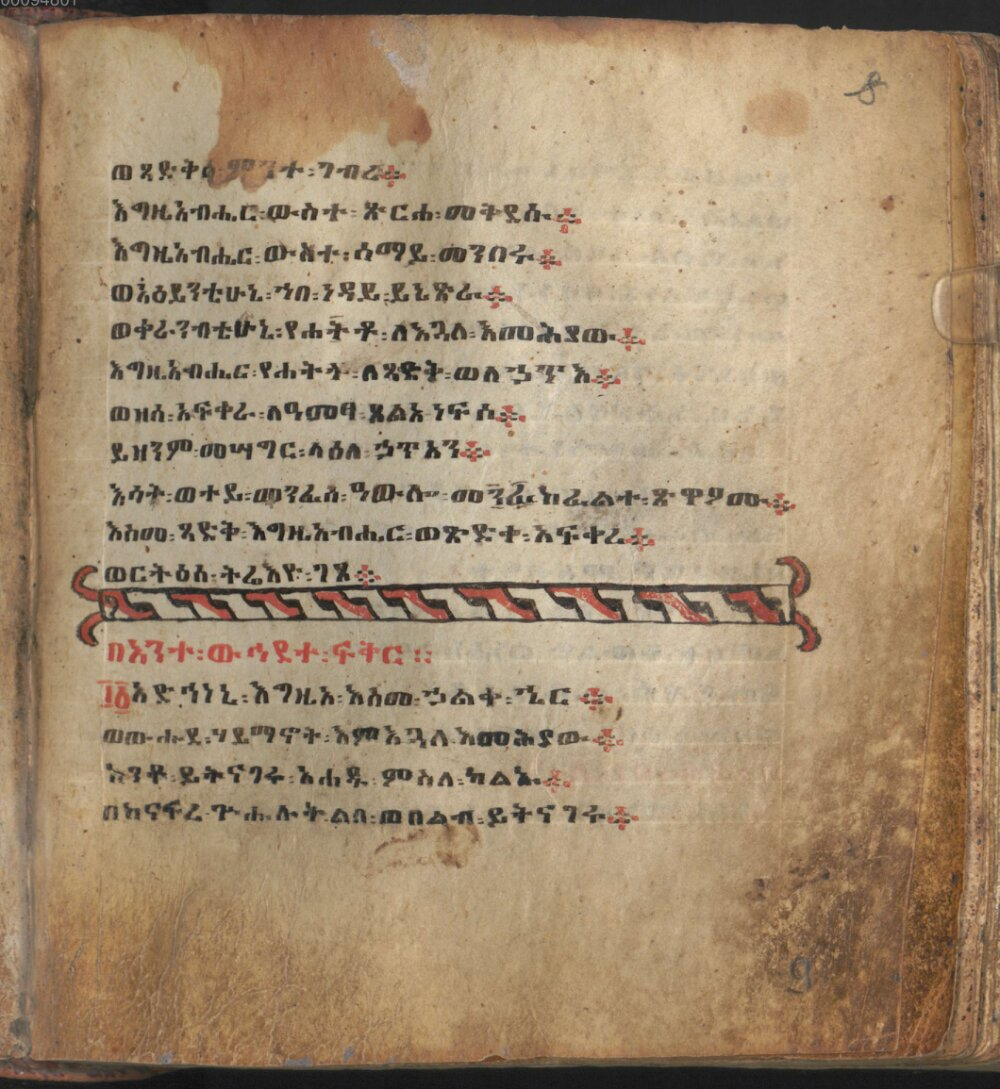 00094801
8
ወጻድቅሰ፡ምንተ፡ገብረ፨
እግዚአብሔር፡ውስተ፡ጽርሐ፡መቅደሱ፨
እግዚአብሔር፡ውስተ፡ሰማይ፡መንበሩ፨
ወአዕይንቲሁኒ፡ኀበ፡ነዳይ፡ይኔጽራ፨
ወቀራንብቲሁኒ፡የሐትቶ፡ለእጓለ፡እመሕያው፨
እግዚአብሔር፡የሐትት፡ለጻድቅ፡ወለኃጥእ፨
ወዘሰ፡አፍቀራ፡ለዓመፃ፡ጸልአ፡ነፍሶ፨
ይዘንም፡መሣግር፡ላዕለ፡ኃጥአን፨
እሳት፡ወተይ፡መንፈሰ፡ዓውሎ፡መክፈልተ፡ጽዋዖሙ፨
እስመ፡ጻድቅ፡እግዚአብሔር፡ወጽድቀ፡አፍቀረ፨
ወርትዕሰ፡ትሬእዮ፡ገጹ፨
በእንተ፡ውኅደተ፡ፍቅር፡፡
፲፩አድኅነኒ፡እግዚኦ፡እስመ፡ኃልቀ፡ኄር፨
ወውሑደ፡ሃይማኖት፡እምእጓለ፡እመሕያው፨
ከንቶ፡ይትናገሩ፡አሐዱ፡ምስለ፡ካልኡ፨
በከናፍረ፡ጕሕሉት፡ልበ፡ወበልብ፡ይትናገሩ፨
9